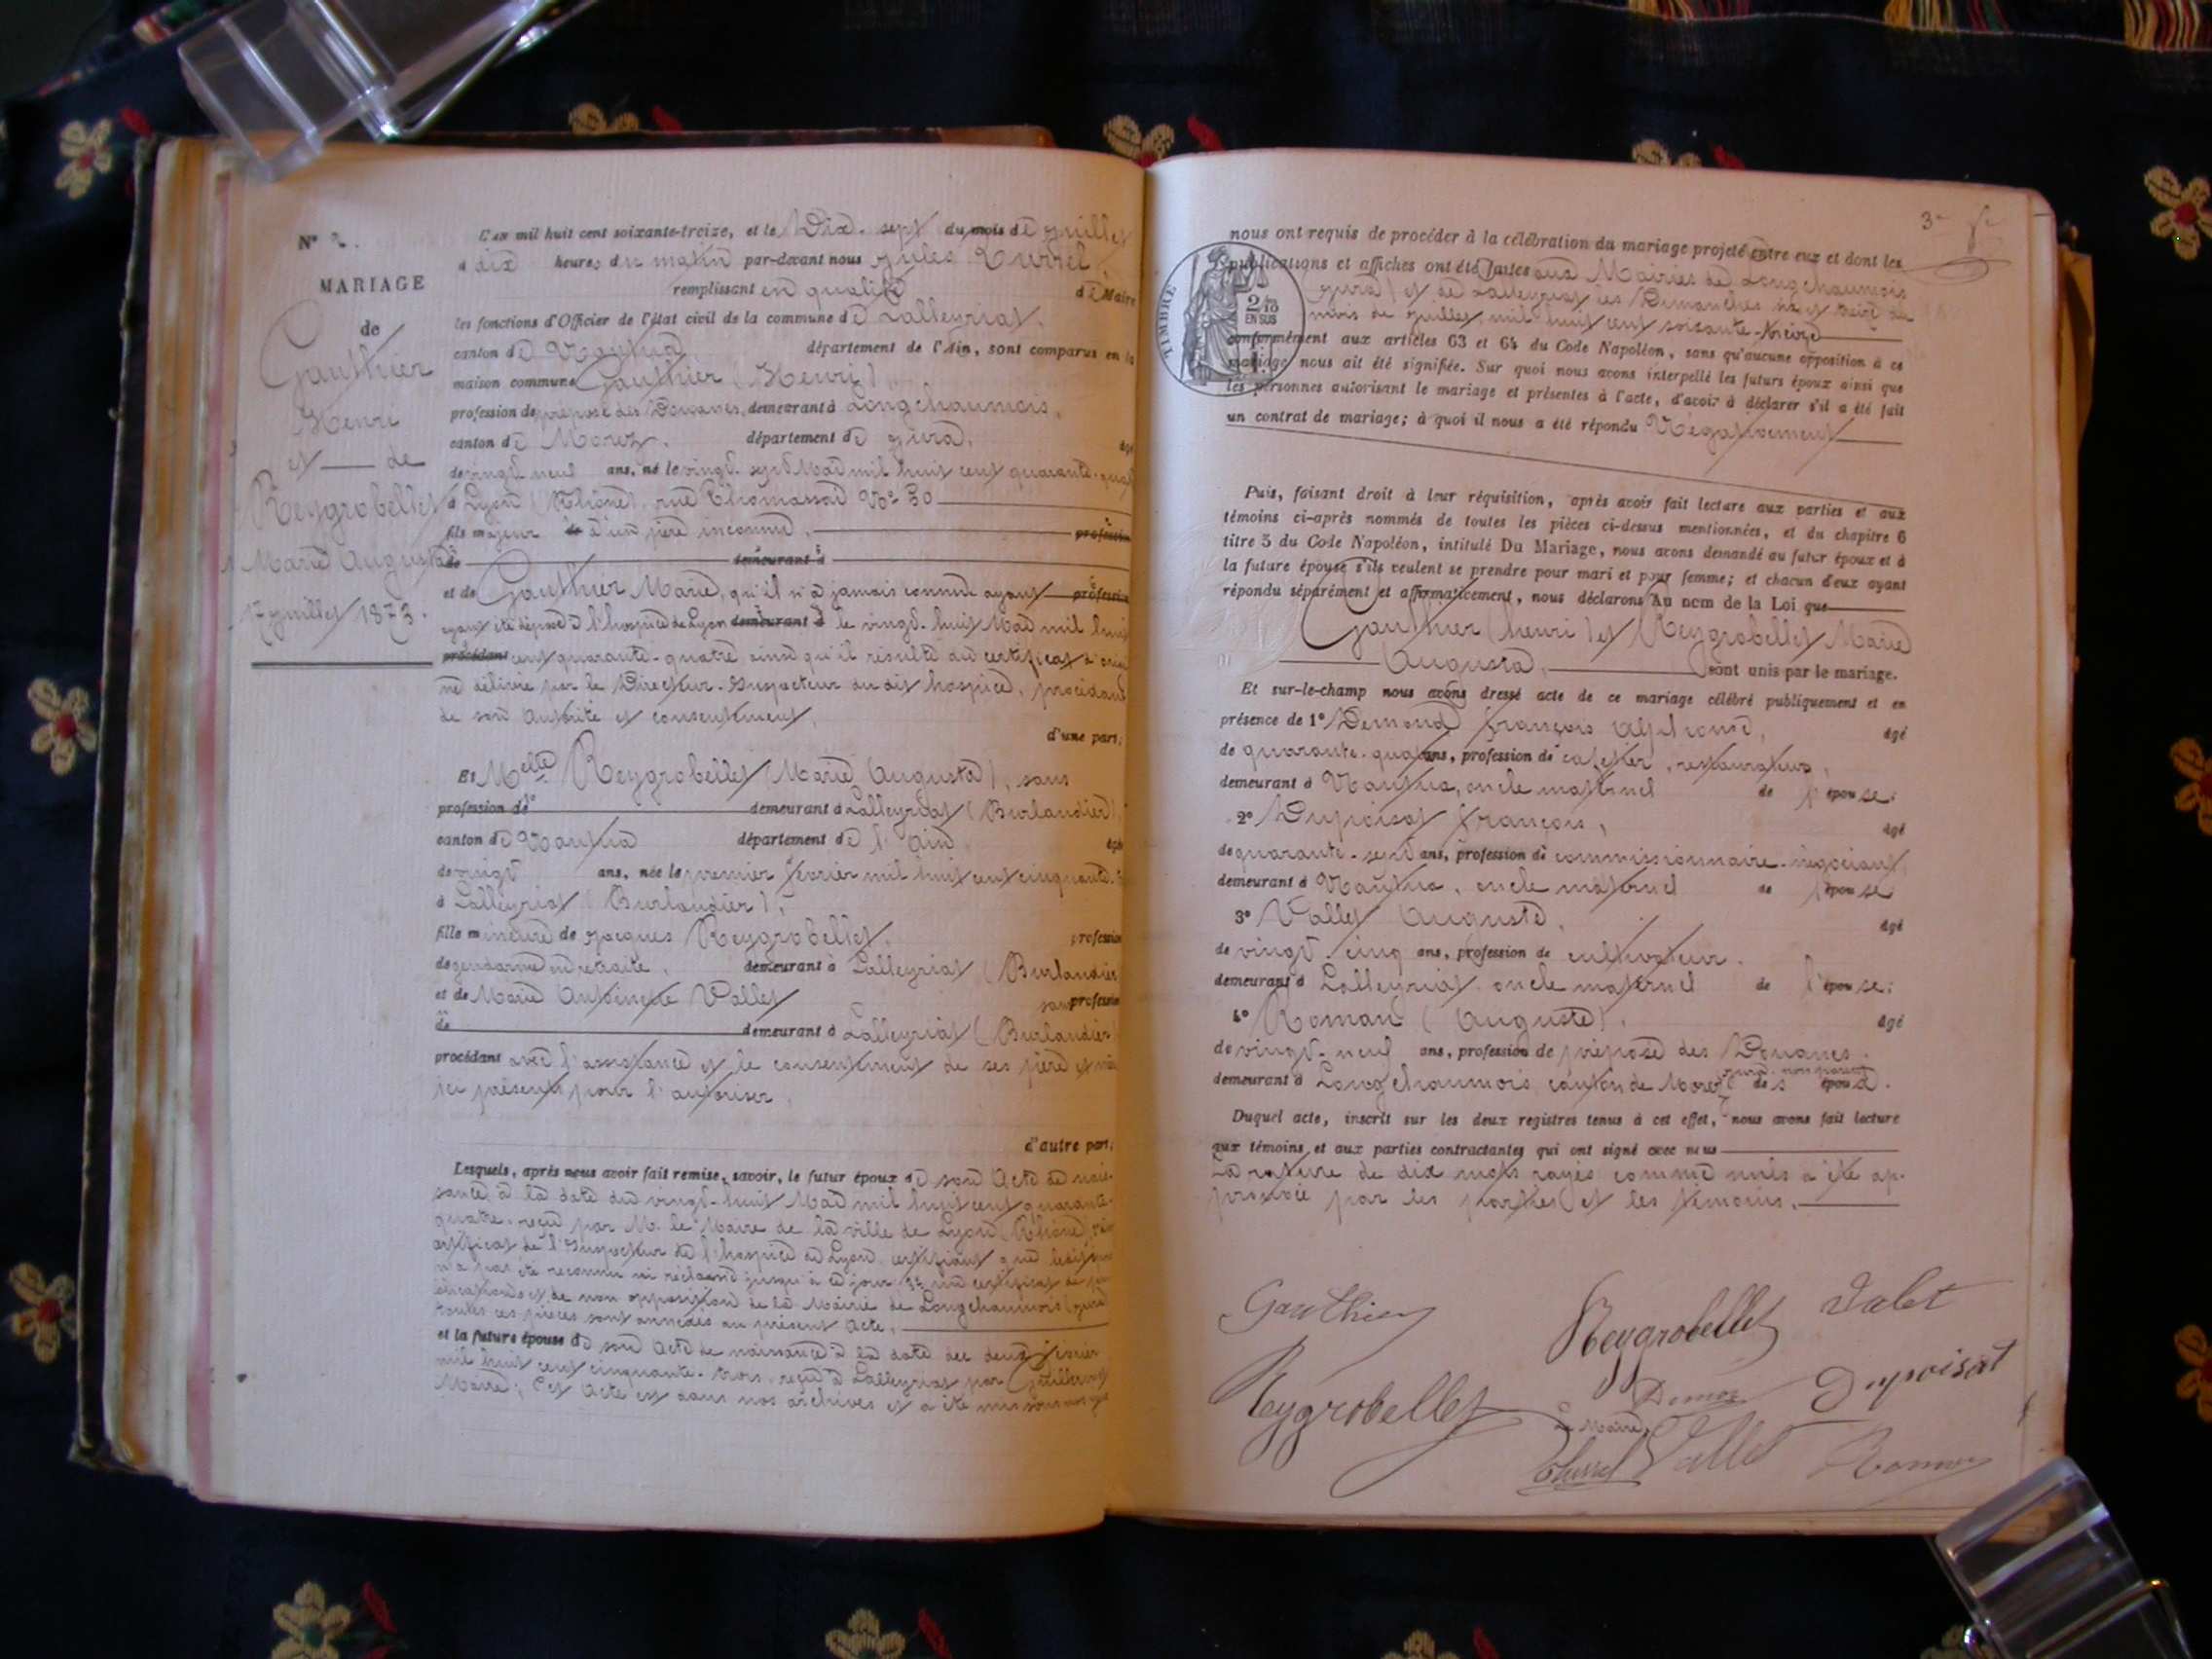 N° 2.
MARIAGE
de
Gauthier
Henri
et — de
Reygrobellet
Marie Augusta
17 juillet 1873.
L'an mil huit cent soixante-treize, et le Dix-sept du mois de juillet
à dix heures du matin par-devant nous Jules
remplissant en qualité de Maire
les fonctions d'Officier de l'état civil de la commune de Lalleyriat,
canton de Nantua, département de l'Ain, sont comparus en la
maison commune Gauthier (Henri),
profession de préposé des Douanes, demeurant à Longchaumois,
canton de Morez, département du Jura, âgé
de vingt neuf ans, né le vingt-sept Mai mil huit cent quarante-quatre
à Lyon (Rhône), rue Thomassin N° 30
fils majeur de d'un père inconnu, profession
de demeurant à
et de Gauthier Marie, qu'il n'a jamais connue ayant profession
ayant été déposé à l'hospice de Lyon demeurant à le vingt-huit Mai mil huit
procédant cent quarante-quatre, ainsi qu'il résulte du certificat d'origi
ne délivré par le Directeur-Inspecteur du dit hospice, procédant
de son Autorité et consentement,
d'une part;
Et Melle Reygrobellet (Marie Augusta), sans
profession de demeurant à Lalleyriat (Burlandier),
canton de Nantua département de l'Ain âgée
de vingt ans, née le premier février mil huit cent cinquante
à Lalleyriat (Burlandier),
fille mineure de Jacques Reygrobellet, profession
de gendarme en retraite, demeurant à Lalleyriat (Burlandier
et de Marie Antoinette Vallet sans profession
de demeurant à Lalleyriat (Burlandier)
procédant avec l'assistance et le consentement de ses père et mère
ici présents pour l'autoriser,
d'autre part;
Lesquels, après nous avoir fait remise, savoir, le futur époux de son Acte de nais-
sance à la date du vingt-huit Mai mil huit cent quarante-
quatre, reçu par M. le Maire de la ville de Lyon (Rhône)
certificat de l'Inspecteur de l'hospice de Lyon certifiant que ledit
n'a pas été reconnu ni réclamé jusqu'à ce jour un certificat de pu
blications et de non opposition de la Mairie de Longchaumois (Jura)
toutes ces pièces sont annexées au présent Acte,
et la future épouse de son Acte de naissance à la date du deux février
mil huit cent cinquante-trois, reçu à Lalleyriat par
Maire; Cet Acte est dans nos archives et a été mis sous nos yeux
3e
nous ont requis de procéder à la célébration du mariage projeté entre eux et dont les
publications et affiches ont été faites aux Mairies de Longchaumois
(Jura) et de Lalleyriat les Dimanches six et treize du
mois de juillet, mil huit cent soixante-treize
TIMBRE
2/10
EN SUS
conformément aux articles 63 et 64 du Code Napoléon, sans qu'aucune opposition à ce
mariage nous ait été signifiée. Sur quoi nous avons interpellé les futurs époux ainsi que
les personnes autorisant le mariage et présentes à l'acte, d'avoir à déclarer s'il a été fait
un contrat de mariage; à quoi il nous a été répondu Négativement
Puis, faisant droit à leur réquisition, après avoir fait lecture aux parties et aux
témoins ci-après nommés de toutes les pièces ci-dessus mentionnées, et du chapitre 6
titre 5 du Code Napoléon, intitulé Du Mariage, nous avons demandé au futur époux et à
la future épouse s'ils veulent se prendre pour mari et pour femme; et chacun d'eux ayant
répondu séparément et affirmativement, nous déclarons au nom de la Loi que
Gauthier (henri) et Reygrobellet Marie
Augusta, sont unis par le mariage.
Et sur-le-champ nous avons dressé acte de ce mariage célébré publiquement et en
présence de 1° Demond François Alphonse, âgé
de quarante-quatre ans, profession de cafetier, restaurateur,
demeurant à Nantua, oncle maternel de l'épouse;
2° Dupoisat François, âgé
de quarante-sept ans, profession de commissionnaire-négociant,
demeurant à Nantua, oncle maternel de l'épouse
3° Vallet Auguste, âgé
de vingt-cinq ans, profession de cultivateur.
demeurant à Lalleyriat, oncle maternel de l'épouse;
4° Roman (Auguste), âgé
de vingt-neuf ans, profession de préposé des Douanes.
Jura, non parent
demeurant à Longchaumois canton de Morez des époux.
Duquel acte, inscrit sur les deux registres tenus à cet effet, nous avons fait lecture
aux témoins et aux parties contractantes qui ont signé avec nous
La rature de dix mots rayés comme nuls a été ap-
prouvée par les parties et les témoins.
Gauthier
Reygrobellet
Valet
Reygrobellet
Dupoisat
Le Maire,
Vallet
Roman